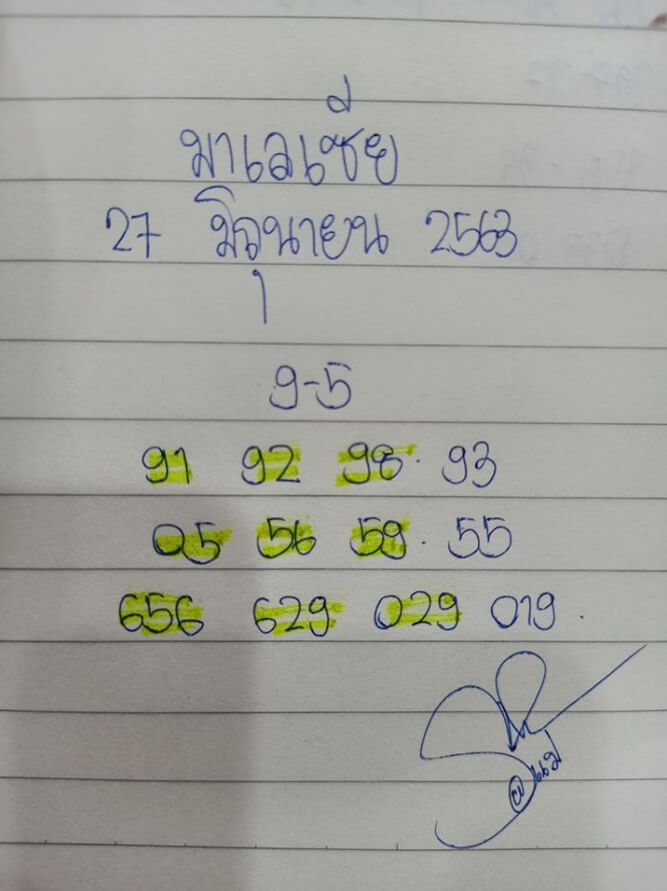 มาเลเซีย
27 มิถุนายน 2563
9-5
91 92 98 . 93
05 56 59 . 55
656 629 029 019 .
@แม่